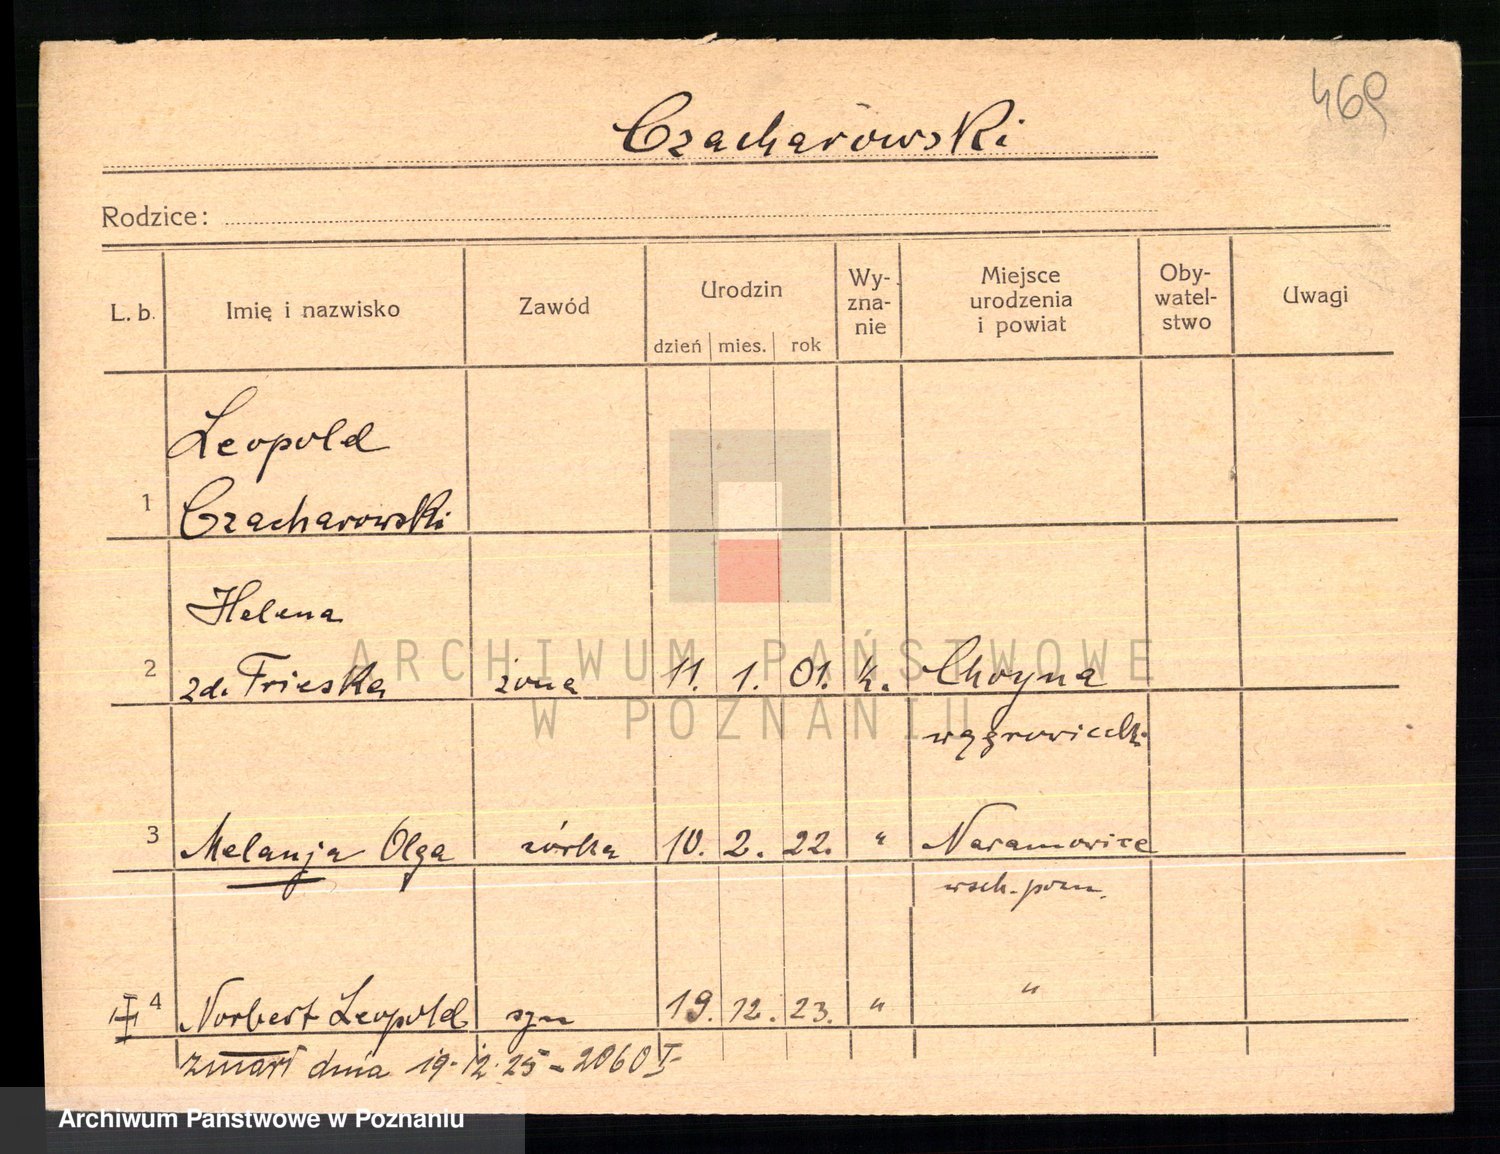 469
Czacharowski
Rodzice:
L. b. Imię i nazwisko Zawód Urodzin dzień mies. rok Wy-zna-nie Miejsce urodzenia i powiat Oby-watel-stwo Uwagi
Leopold
1 Czacharowski
Helena
2 zd. Frieska żona 11. 1. 01. k. Choyna
wągrowieck.
3 Melanja Olga córka 10. 2. 22. " Naramowice
wsch.-pozn.
4 Norbert Leopold syn 19. 12. 23. " "
zmarł dnia 19.12.25 - 2060 I
ARCHIWUM PAŃSTWOWE
W POZNANIU
Archiwum Państwowe w Poznaniu